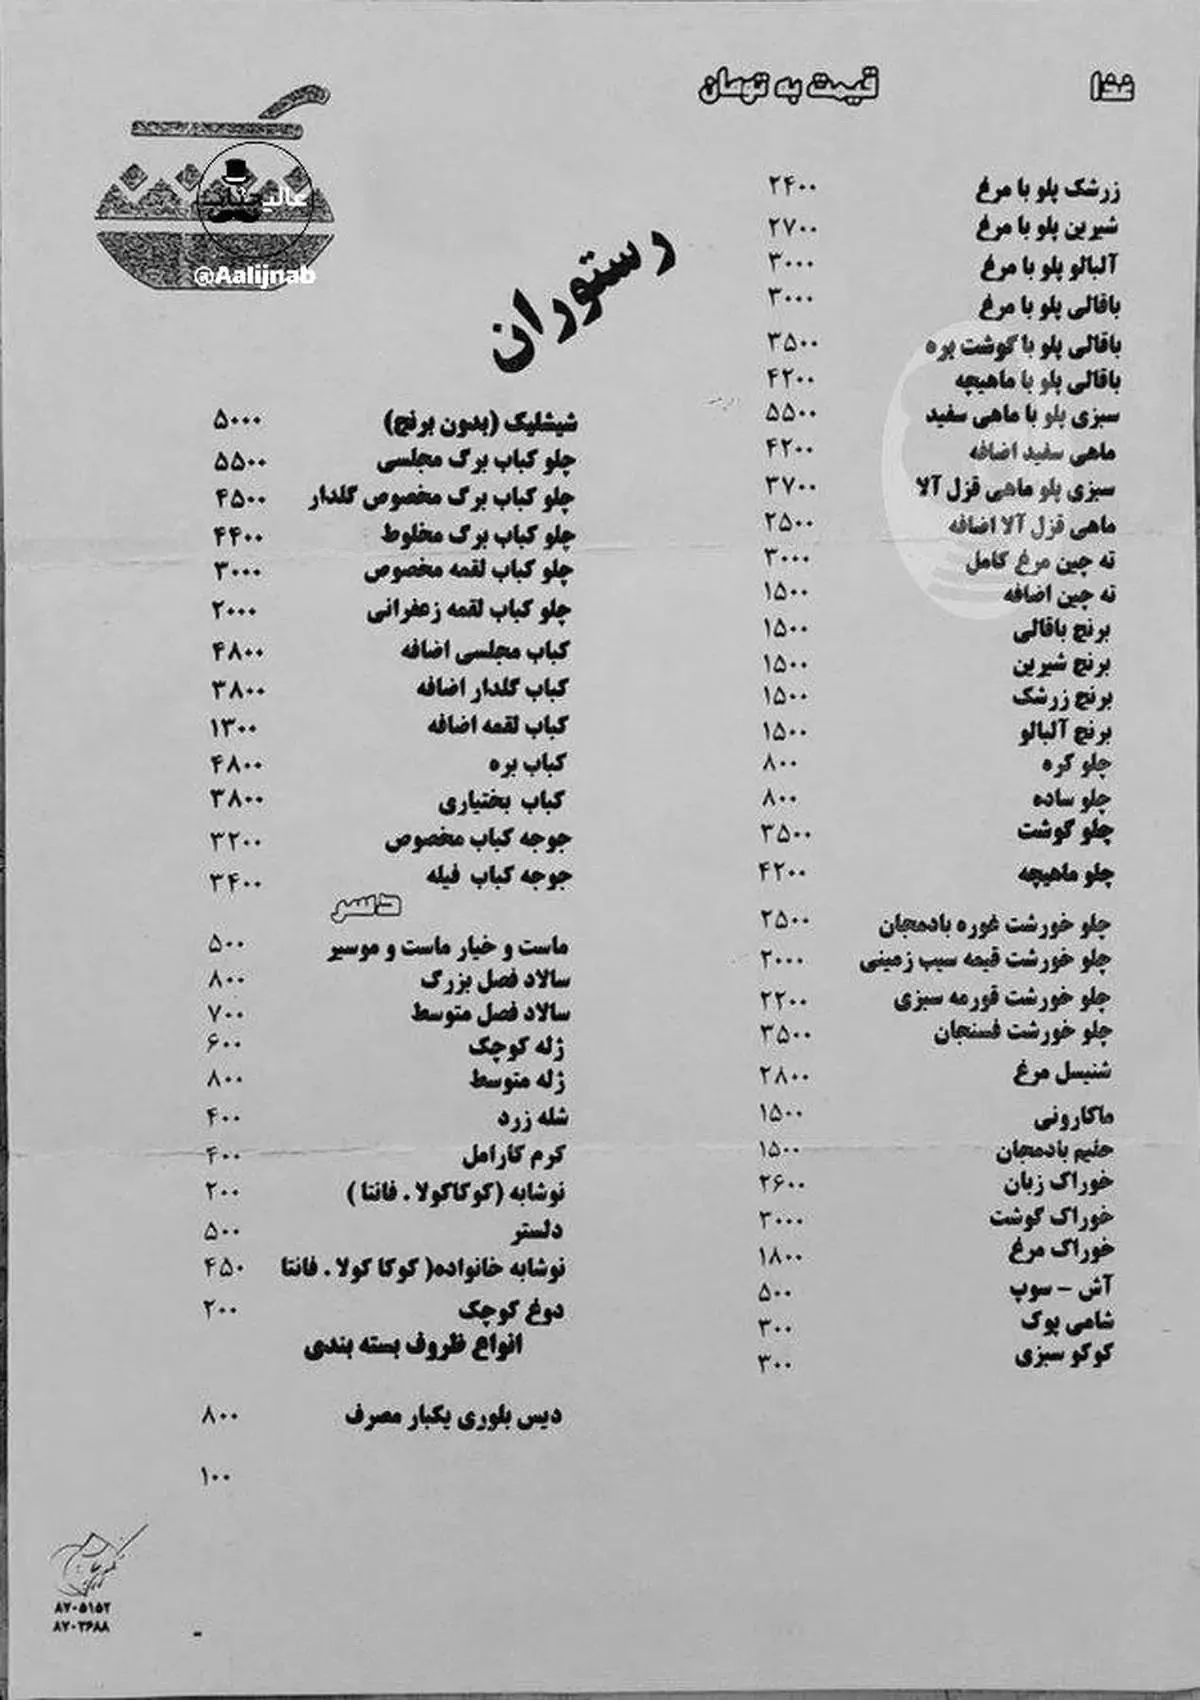 غذا قیمت به تومان
عالیجناب
@Aalijnab
رستوران
زرشک پلو با مرغ ۲۴۰۰
شیرین پلو با مرغ ۲۷۰۰
آلبالو پلو با مرغ ۳۰۰۰
باقالی پلو با مرغ ۳۰۰۰
باقالی پلو با گوشت بره ۳۵۰۰
باقالی پلو با ماهیچه ۴۲۰۰
سبزی پلو با ماهی سفید ۵۵۰۰
ماهی سفید اضافه ۴۲۰۰
سبزی پلو ماهی قزل آلا ۳۷۰۰
ماهی قزل آلا اضافه ۲۵۰۰
ته چین مرغ کامل ۳۰۰۰
ته چین اضافه ۱۵۰۰
برنج باقالی ۱۵۰۰
برنج شیرین ۱۵۰۰
برنج زرشک ۱۵۰۰
برنج آلبالو ۱۵۰۰
چلو کره ۸۰۰
چلو ساده ۸۰۰
چلو گوشت ۳۵۰۰
چلو ماهیچه ۴۲۰۰
چلو خورشت غوره بادمجان ۲۵۰۰
چلو خورشت قیمه سیب زمینی ۲۰۰۰
چلو خورشت قورمه سبزی ۲۲۰۰
چلو خورشت فسنجان ۳۵۰۰
شنیسل مرغ ۲۸۰۰
ماکارونی ۱۵۰۰
حلیم بادمجان ۱۵۰۰
خوراک زبان ۲۶۰۰
خوراک گوشت ۳۰۰۰
خوراک مرغ ۱۸۰۰
آش - سوپ ۵۰۰
شامی پوک ۳۰۰
کوکو سبزی ۳۰۰
شیشلیک (بدون برنج) ۵۰۰۰
چلو کباب برگ مجلسی ۵۵۰۰
چلو کباب برگ مخصوص گلدار ۴۵۰۰
چلو کباب برگ مخلوط ۴۴۰۰
چلو کباب لقمه مخصوص ۳۰۰۰
چلو کباب لقمه زعفرانی ۲۰۰۰
کباب مجلسی اضافه ۴۸۰۰
کباب گلدار اضافه ۳۸۰۰
کباب لقمه اضافه ۱۳۰۰
کباب بره ۴۸۰۰
کباب بختیاری ۳۸۰۰
جوجه کباب مخصوص ۳۲۰۰
جوجه کباب فیله ۳۴۰۰
دسر
ماست و خیار ماست و موسیر ۵۰۰
سالاد فصل بزرگ ۸۰۰
سالاد فصل متوسط ۷۰۰
ژله کوچک ۶۰۰
ژله متوسط ۸۰۰
شله زرد ۴۰۰
کرم کارامل ۴۰۰
نوشابه (کوکاکولا . فانتا ) ۲۰۰
دلستر ۵۰۰
نوشابه خانواده( کوکا کولا . فانتا ۴۵۰
دوغ کوچک ۲۰۰
انواع ظروف بسته بندی
دیس بلوری یکبار مصرف ۸۰۰
۱۰۰
۸۷۰۵۱۵۲
۸۷۰۳۶۸۸